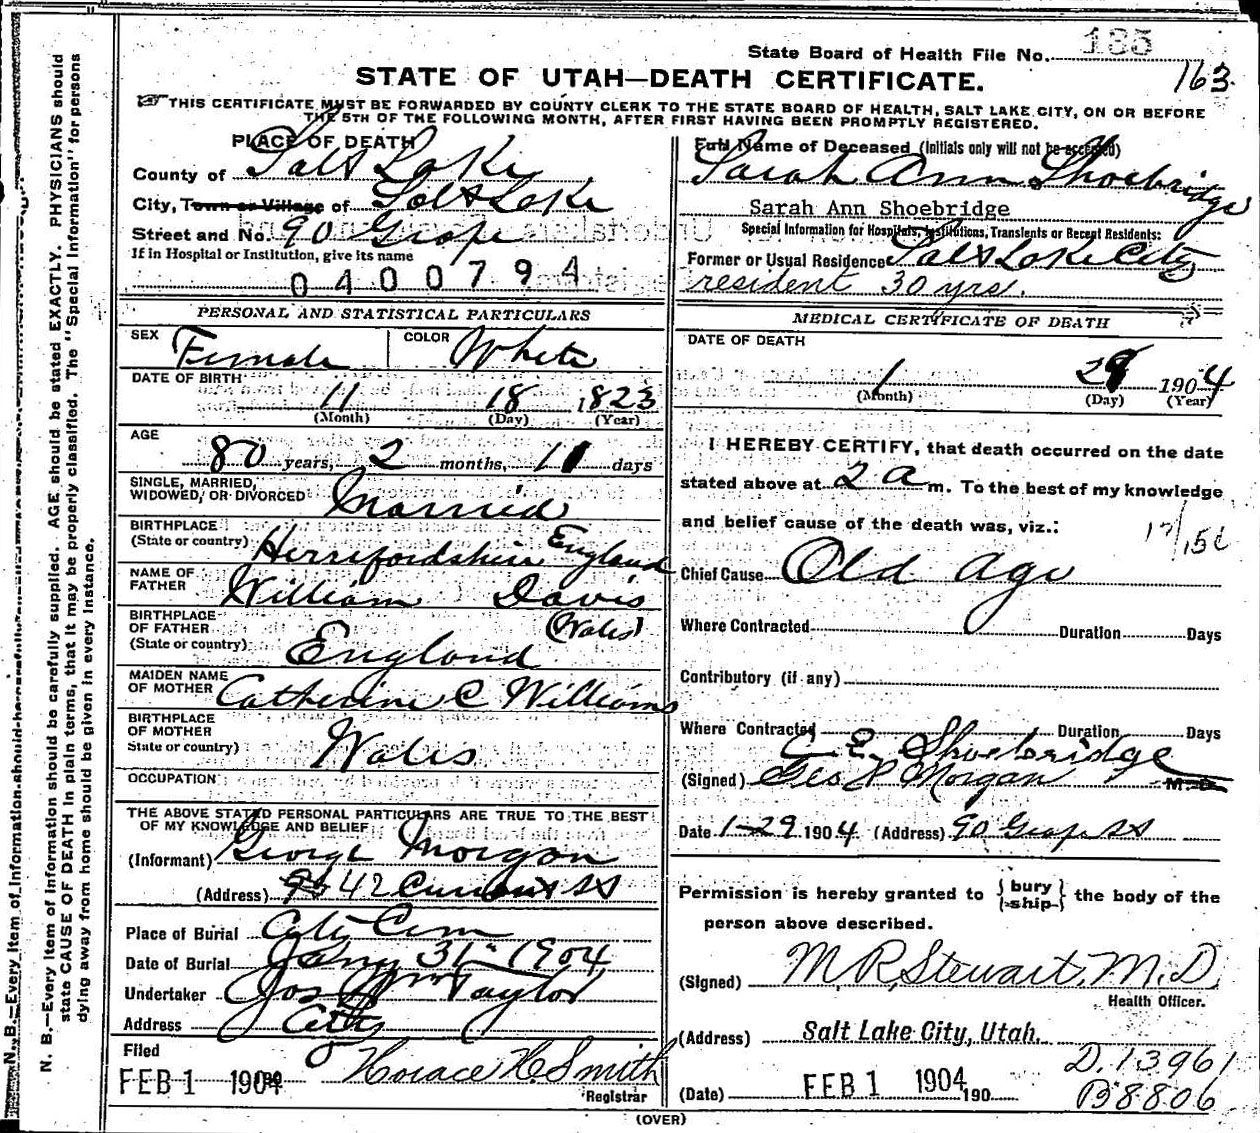 State Board of Health File No. 185
163
STATE OF UTAH—DEATH CERTIFICATE.
THIS CERTIFICATE MUST BE FORWARDED BY COUNTY CLERK TO THE STATE BOARD OF HEALTH, SALT LAKE CITY, ON OR BEFORE
THE 5TH OF THE FOLLOWING MONTH, AFTER FIRST HAVING BEEN PROMPTLY REGISTERED.
PLACE OF DEATH
County of Salt Lake
City, Town or Village of Salt Lake
Street and No. 90 Grape
If in Hospital or Institution, give its name
0400794
PERSONAL AND STATISTICAL PARTICULARS
SEX Female COLOR White
DATE OF BIRTH
11 18 1823
(Month) (Day) (Year)
AGE
80 years, 2 months, 11 days
SINGLE, MARRIED,
WIDOWED, OR DIVORCED Married
BIRTHPLACE
(State or country) Herrefordshire England
NAME OF
FATHER William Davis
BIRTHPLACE
OF FATHER (Wales)
(State or country) England
MAIDEN NAME
OF MOTHER Catherine C Williams
BIRTHPLACE
OF MOTHER
State or country) Wales
OCCUPATION
THE ABOVE STATED PERSONAL PARTICULARS ARE TRUE TO THE BEST
OF MY KNOWLEDGE AND BELIEF
(Informant) George Morgan
(Address) 42 Current St
Place of Burial City Cem
Date of Burial Jany 31st 1904
Undertaker Jos Wm Taylor
Address City
Filed
FEB 1 1904 Horace H. Smith
Registrar
(OVER)
Full Name of Deceased (Initials only will not be accepted)
Sarah Ann Shoebridge
Sarah Ann Shoebridge
Special Information for Hospitals, Institutions, Transients or Recent Residents:
Former or Usual Residence Salt Lake City
resident 30 yrs.
MEDICAL CERTIFICATE OF DEATH
DATE OF DEATH
1 29 1904
(Month) (Day) (Year)
I HEREBY CERTIFY, that death occurred on the date
stated above at 2 a m. To the best of my knowledge
and belief cause of the death was, viz.:
Chief Cause Old Age
Where Contracted Duration Days
Contributory (if any)
Where Contracted Duration Days
C. E. Shoebridge
(Signed) Geo P Morgan M.D.
Date 1-29 1904. (Address) 90 Grape St
Permission is hereby granted to {bury
ship} the body of the
person above described.
(Signed) M. R. Stewart, M.D.
Health Officer.
(Address) Salt Lake City, Utah.
D.13961
(Date) FEB 1 1904 190
B8806
N. B.—Every item of information should be carefully supplied. AGE should be stated EXACTLY. PHYSICIANS should
state CAUSE OF DEATH in plain terms, that it may be properly classified. The "Special Information" for persons
dying away from home should be given in every instance.